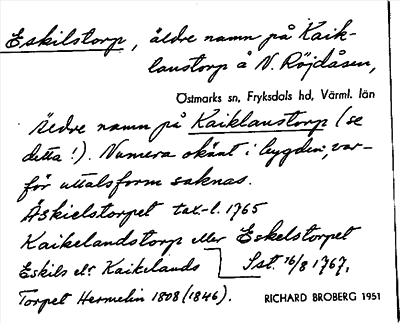 Eskilstorp, äldre namn på Kaik-
laustorp å N. Röjdåsen,
Östmarks sn, Fryksdals hd, Värml. län
Äldre namn på Kaiklaustorp (se
detta!). Numera okänt i bygden, var-
för uttalsform saknas.
Äskielstorpet tax-l. 1765
Kaikelandstorp eller Eskelstorpet
Sst. 16/8 1767.
Eskils elr Kaikelands
Torpet Hermelin 1808 (1846).
RICHARD BROBERG 1951